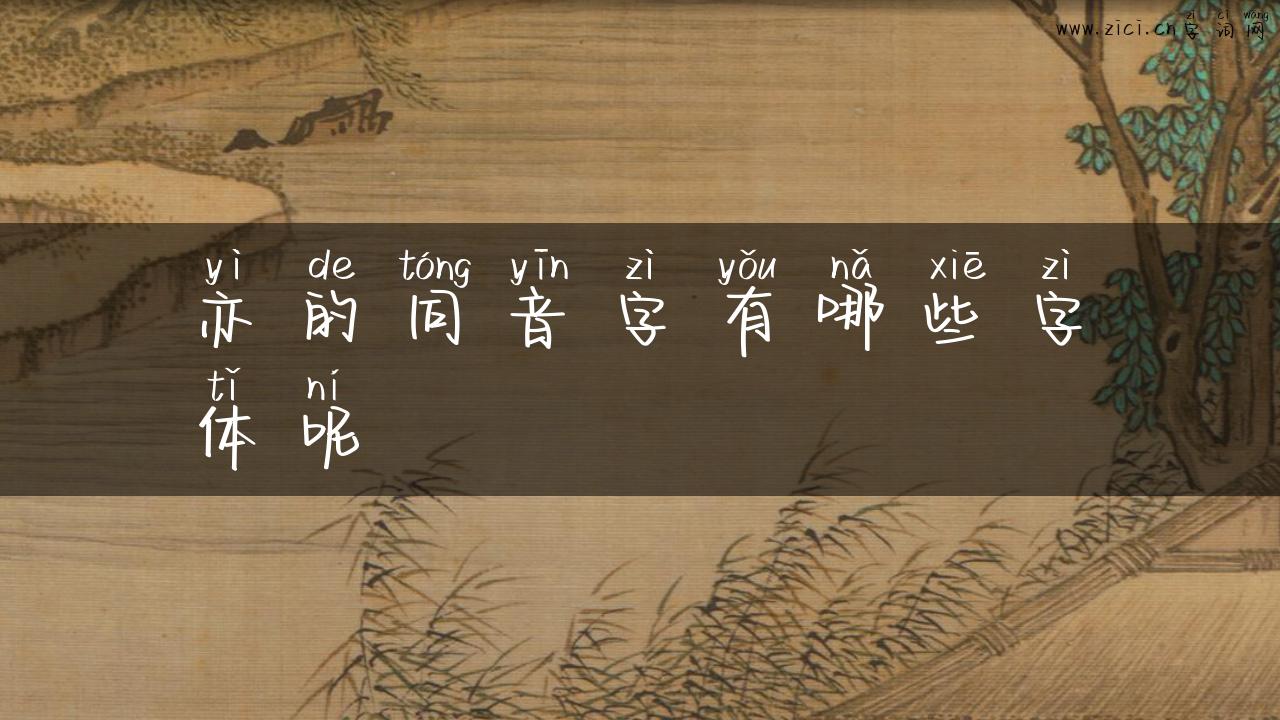 zì cí wǎng
www.zici.cn字词网
yì de tóng yīn zì yǒu nǎ xiē zì
亦的同音字有哪些字
tǐ ní
体呢